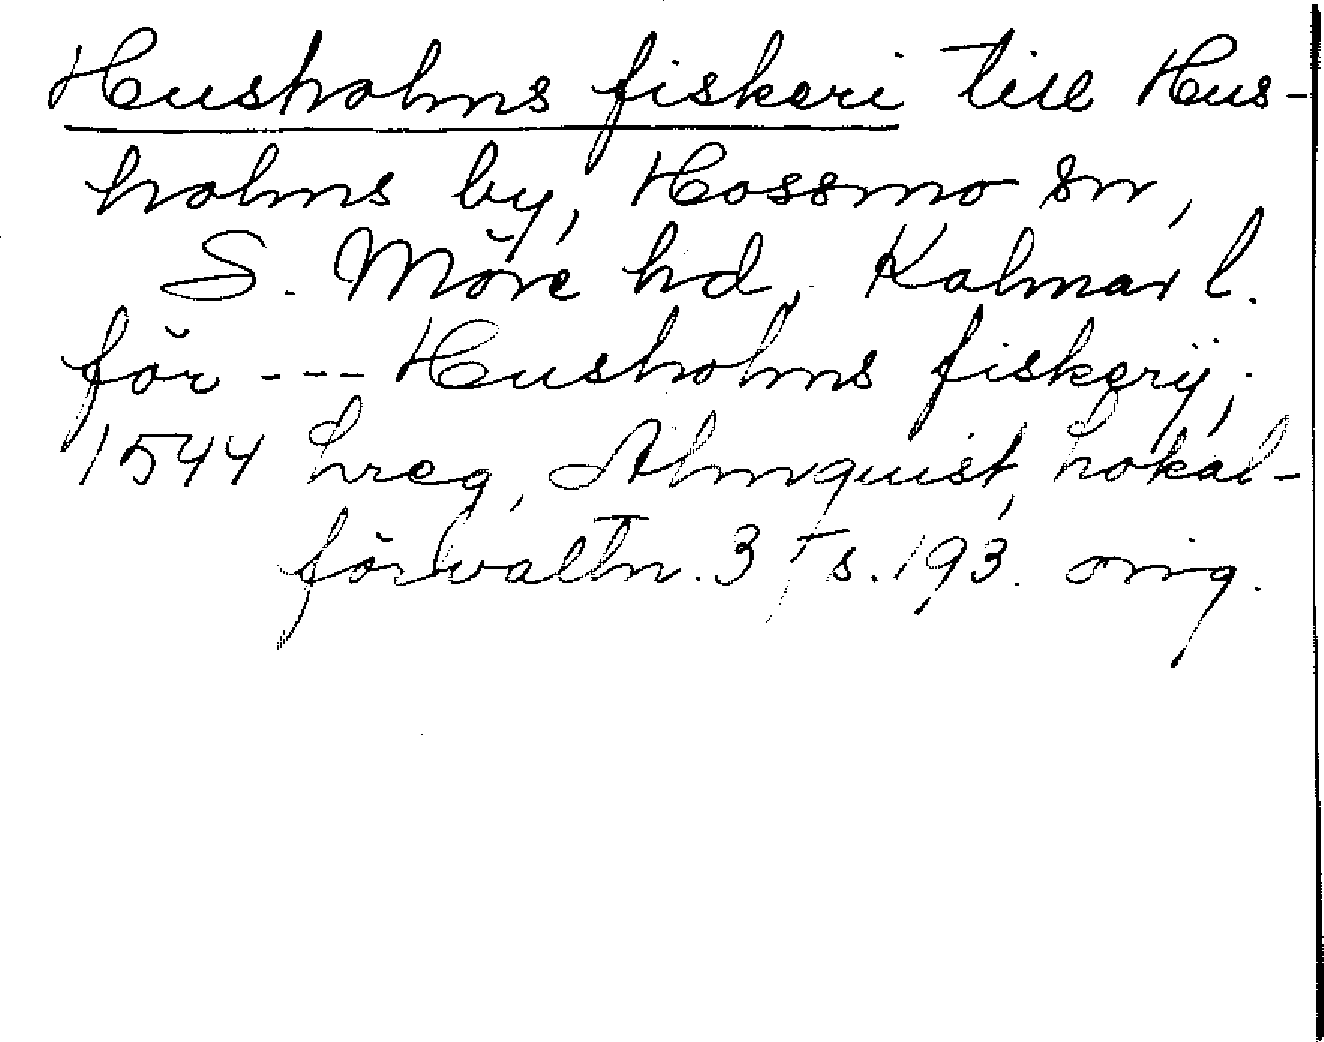 Husholms fiskeri till Hus-
holms by, Hossmo sn,
S. Möre hd, Kalmar l.
för --- Husholms fiskerij,
1544 Lreg, Almquist, Lokal-
förvaltn. 3, s. 193. orig.